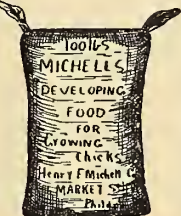 100 lbs
MICHELLS
DEVELOPING
FOOD
FOR
Growing
Chicks
Henry F Michell C
MARKET St
Phila